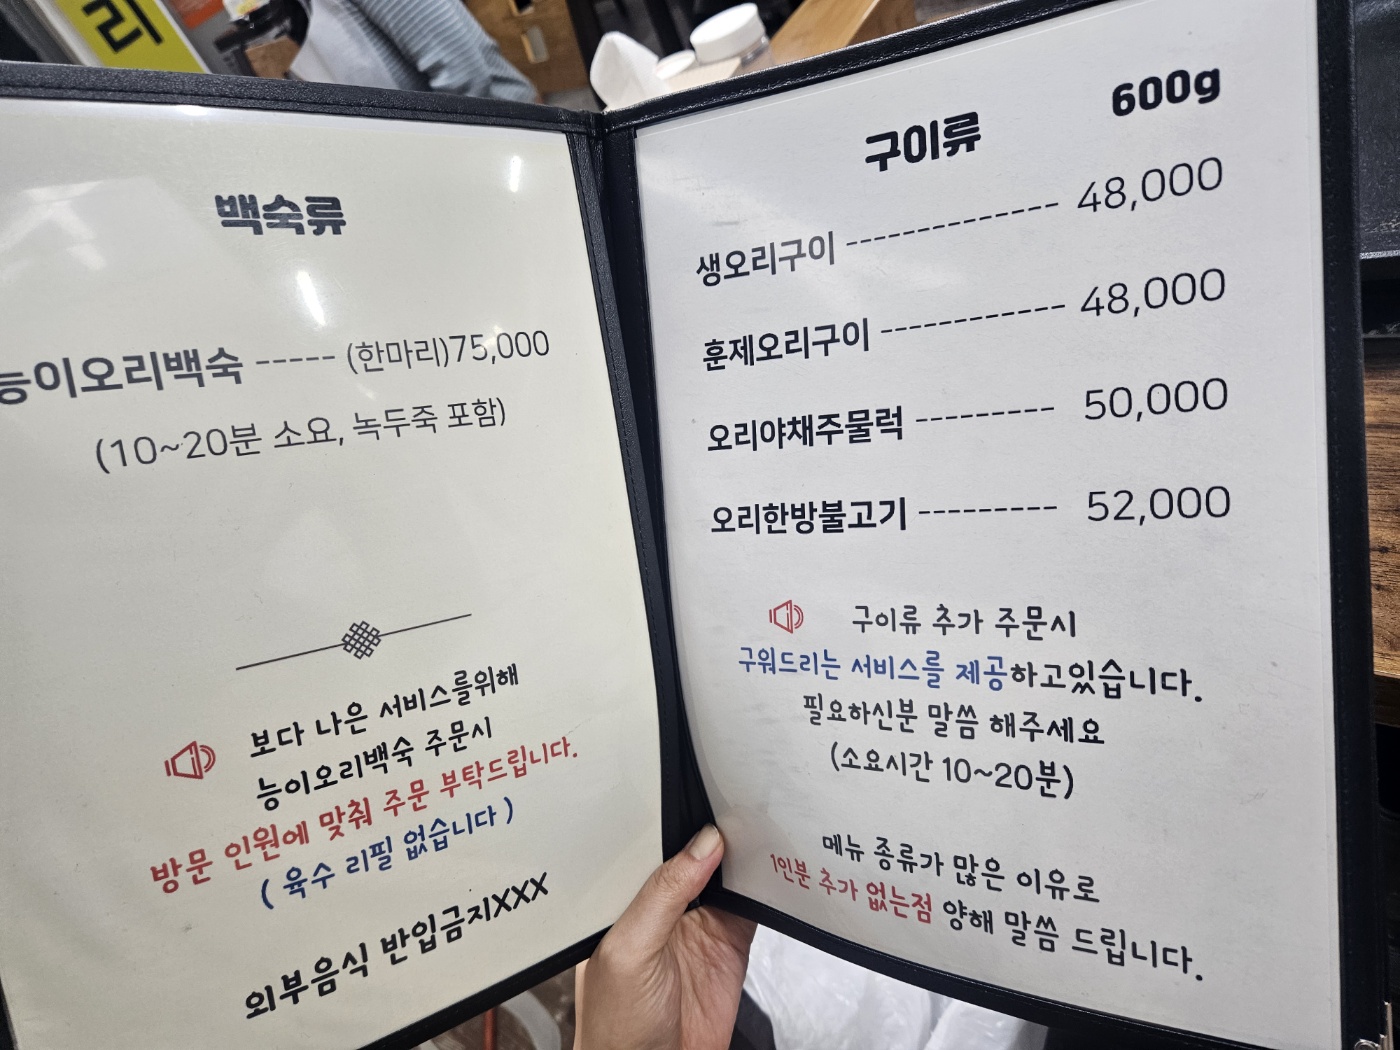 리
백숙류
능이오리백숙 ----- (한마리)75,000
(10~20분 소요, 녹두죽 포함)
보다 나은 서비스를위해
능이오리백숙 주문시
방문 인원에 맞춰 주문 부탁드립니다.
( 육수 리필 없습니다 )
외부음식 반입금지XXX
구이류 600g
생오리구이 ---------------- 48,000
훈제오리구이 ------------- 48,000
오리야채주물럭 ---------- 50,000
오리한방불고기 ---------- 52,000
구이류 추가 주문시
구워드리는 서비스를 제공하고있습니다.
필요하신분 말씀 해주세요
(소요시간 10~20분)
메뉴 종류가 많은 이유로
1인분 추가 없는점 양해 말씀 드립니다.